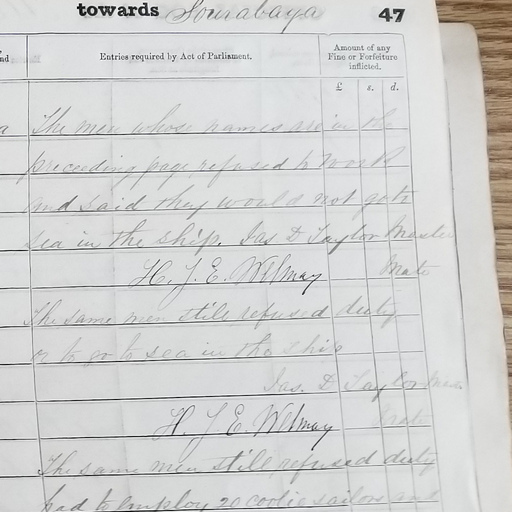 towards Sourabaya 47
nd
Entries required by Act of Parliament.
Amount of any
Fine or Forfeiture
inflicted.
£ s. d.
The men whose names are in the
preceeding page refused to work
and said they would not go to
sea in the ship. Jas D Taylor Master
H. J. E. Mate
The same men still refused duty
or to go to sea in the ship
Jas. D Taylor Mas
H J E. Mate
The same men still refused duty
had to employ 20 coolie sailors and